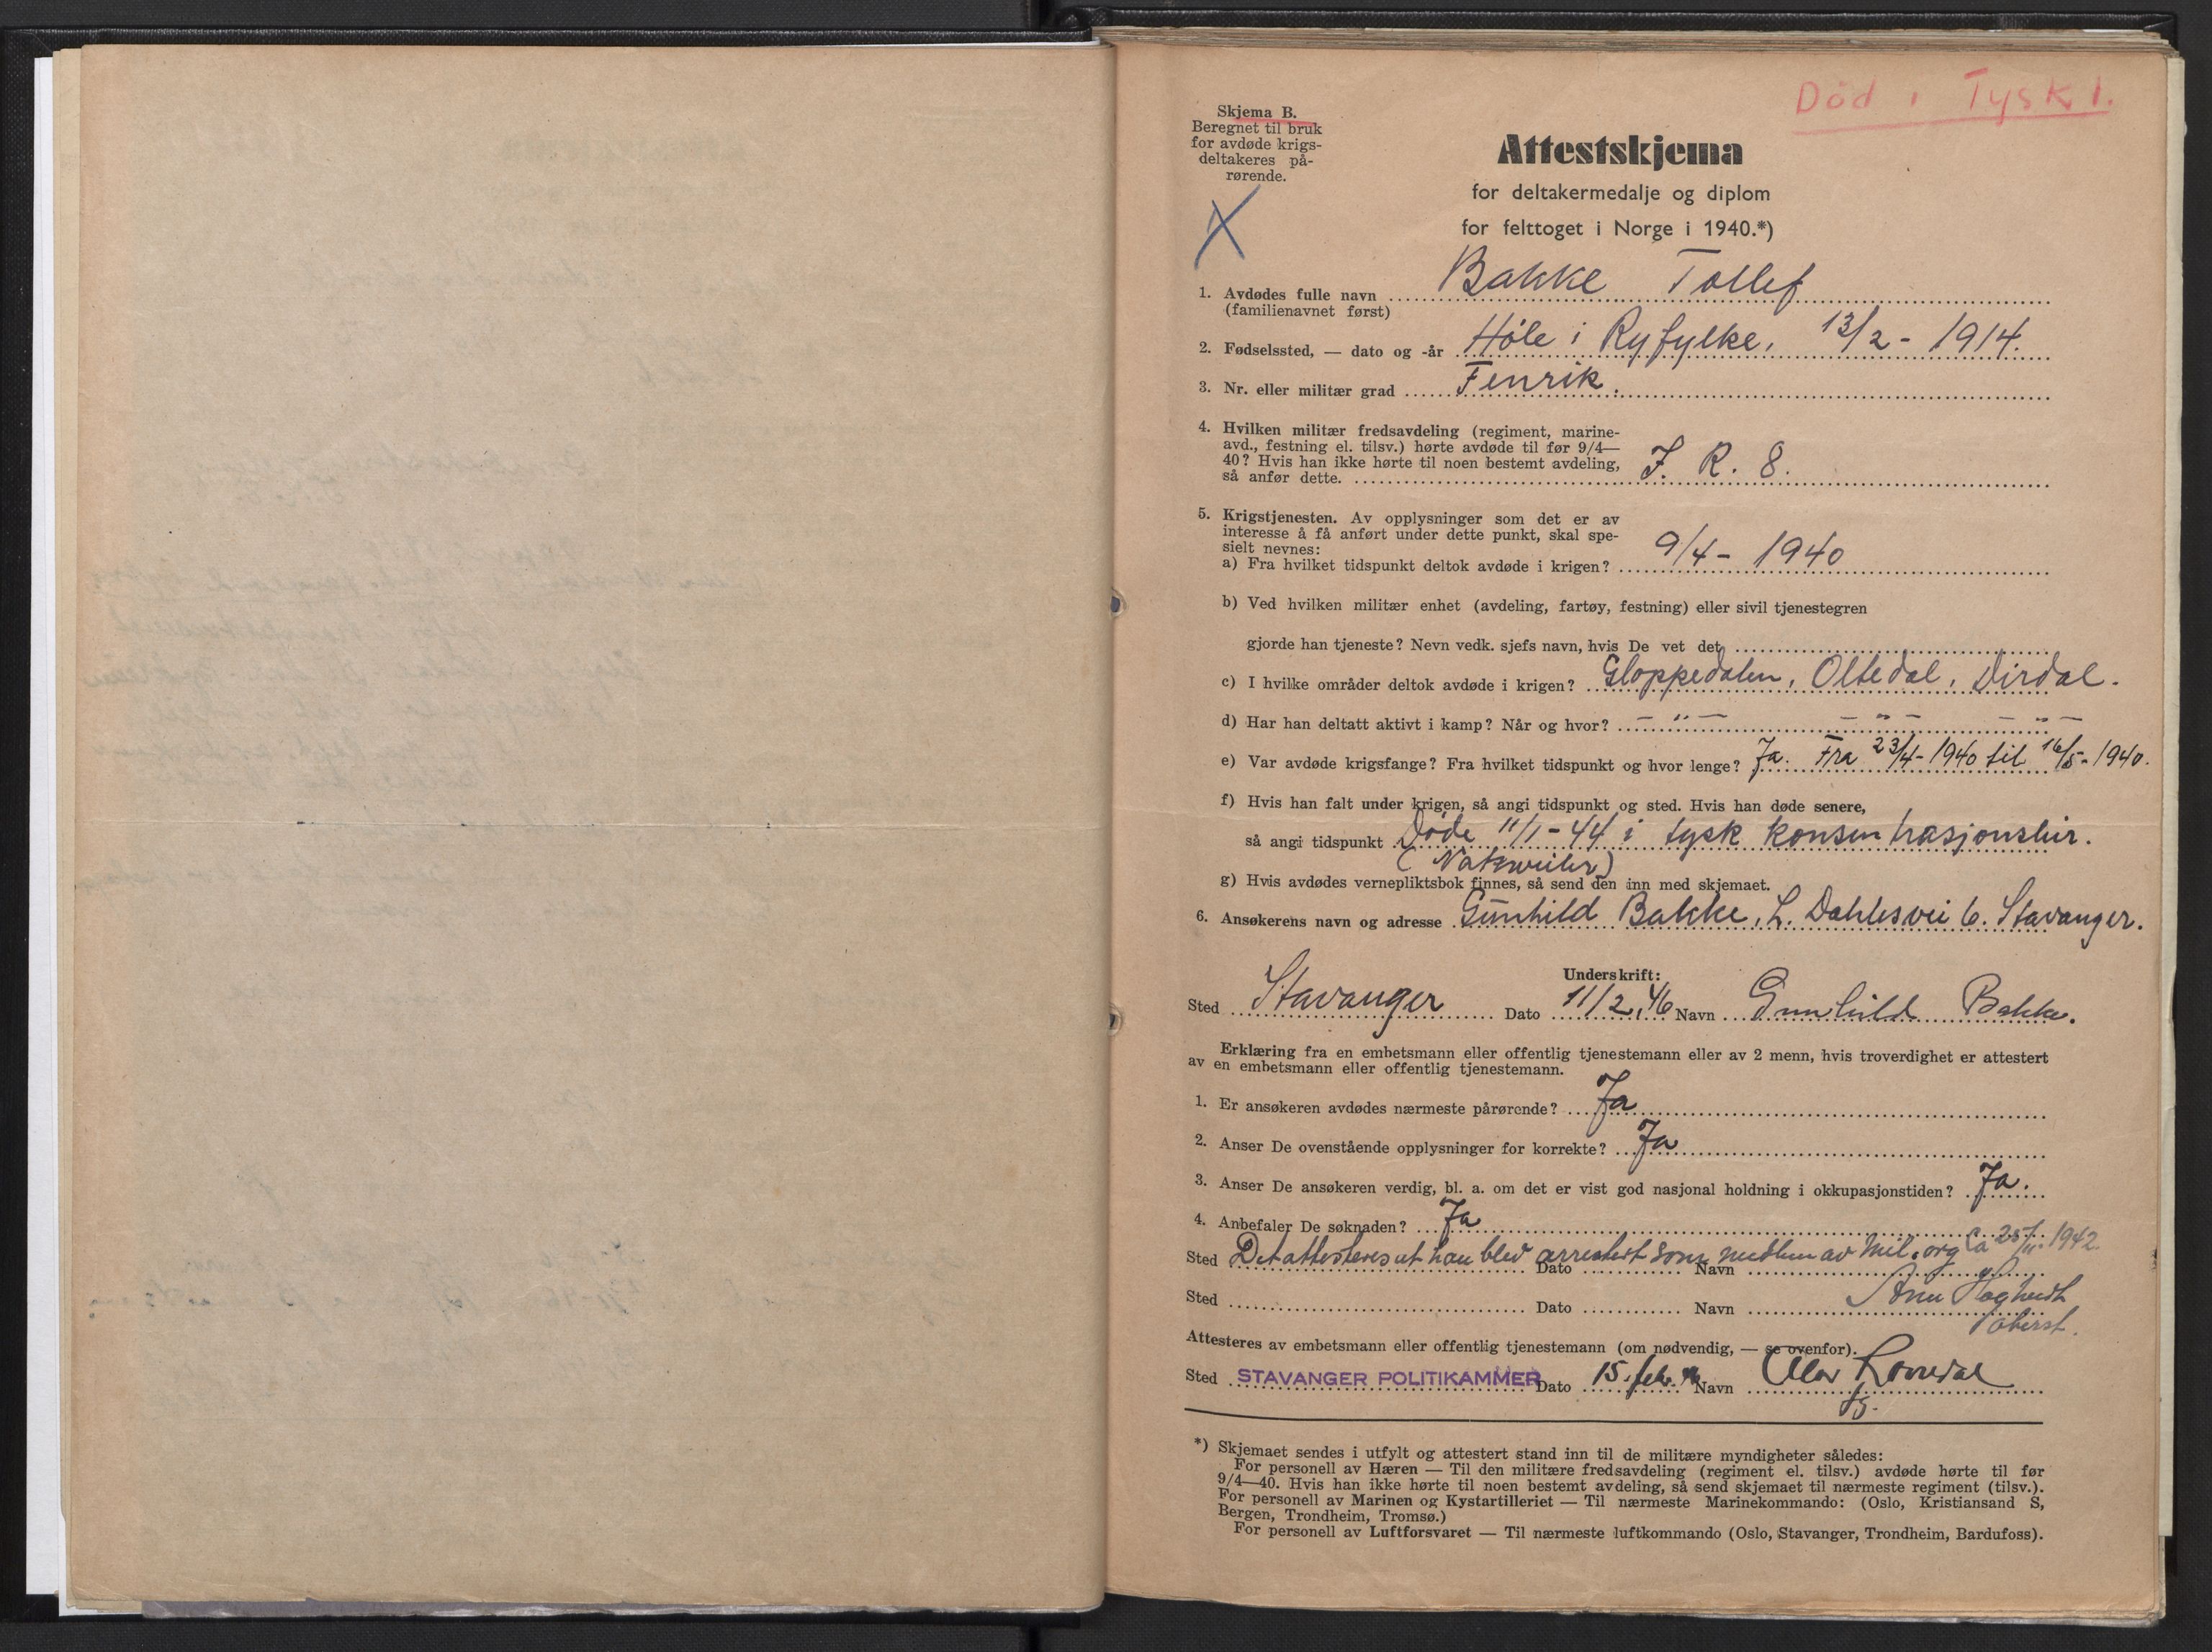 Død i Tyskl.
Skjema B.
Beregnet til bruk
for avdøde krigs-
deltakeres på-
rørende.
X
Attestskjema
for deltakermedalje og diplom
for felttoget i Norge i 1940.*)
1. Avdødes fulle navn Bakke Tollef
(familienavnet først)
2. Fødselssted, — dato og -år Høle i Ryfylke, 13/2 - 1914.
3. Nr. eller militær grad Fenrik.
4. Hvilken militær fredsavdeling (regiment, marine-
avd., festning el. tilsv.) hørte avdøde til før 9/4—
40? Hvis han ikke hørte til noen bestemt avdeling,
så anfør dette. J. R. 8.
5. Krigstjenesten. Av opplysninger som det er av
interesse å få anført under dette punkt, skal spe-
sielt nevnes:
a) Fra hvilket tidspunkt deltok avdøde i krigen? 9/4 - 1940
b) Ved hvilken militær enhet (avdeling, fartøy, festning) eller sivil tjenestegren
gjorde han tjeneste? Nevn vedk. sjefs navn, hvis De vet det
c) I hvilke områder deltok avdøde i krigen? Gloppedalen, Oltedal, Dirdal.
d) Har han deltatt aktivt i kamp? Når og hvor? — " — — " — — " —
e) Var avdøde krigsfange? Fra hvilket tidspunkt og hvor lenge? Ja. Fra 23/4 - 1940 til 16/5 - 1940.
f) Hvis han falt under krigen, så angi tidspunkt og sted. Hvis han døde senere,
så angi tidspunkt Døde 11/1 - 44 i tysk konsentrasjonsleir.
(Natzweiler)
g) Hvis avdødes vernepliktsbok finnes, så send den inn med skjemaet.
6. Ansøkerens navn og adresse Gunhild Bakke, L. Dahlesvei 6. Stavanger.
Underskrift:
Sted Stavanger Dato 11/2.46 Navn Gunhild Bakke.
Erklæring fra en embetsmann eller offentlig tjenestemann eller av 2 menn, hvis troverdighet er attestert
av en embetsmann eller offentlig tjenestemann.
1. Er ansøkeren avdødes nærmeste pårørende? Ja
2. Anser De ovenstående opplysninger for korrekte? Ja
3. Anser De ansøkeren verdig, bl. a. om det er vist god nasjonal holdning i okkupasjonstiden? Ja.
4. Anbefaler De søknaden? Ja
Sted Det attesteres at han blev arrestert som medlem av Mil.org ca 25/11-1942
Dato Navn
Sted Dato Navn
oberst.
Attesteres av embetsmann eller offentlig tjenestemann (om nødvendig, — se ovenfor).
Sted STAVANGER POLITIKAMMER Dato 15. febr. 46 Navn
*) Skjemaet sendes i utfylt og attestert stand inn til de militære myndigheter således:
For personell av Hæren — Til den militære fredsavdeling (regiment el. tilsv.) avdøde hørte til før
9/4—40. Hvis han ikke hørte til noen bestemt avdeling, så send skjemaet til nærmeste regiment (tilsv.).
For personell av Marinen og Kystartilleriet — Til nærmeste Marinekommando: (Oslo, Kristiansand S,
Bergen, Trondheim, Tromsø.)
For personell av Luftforsvaret — Til nærmeste luftkommando (Oslo, Stavanger, Trondheim, Bardufoss).